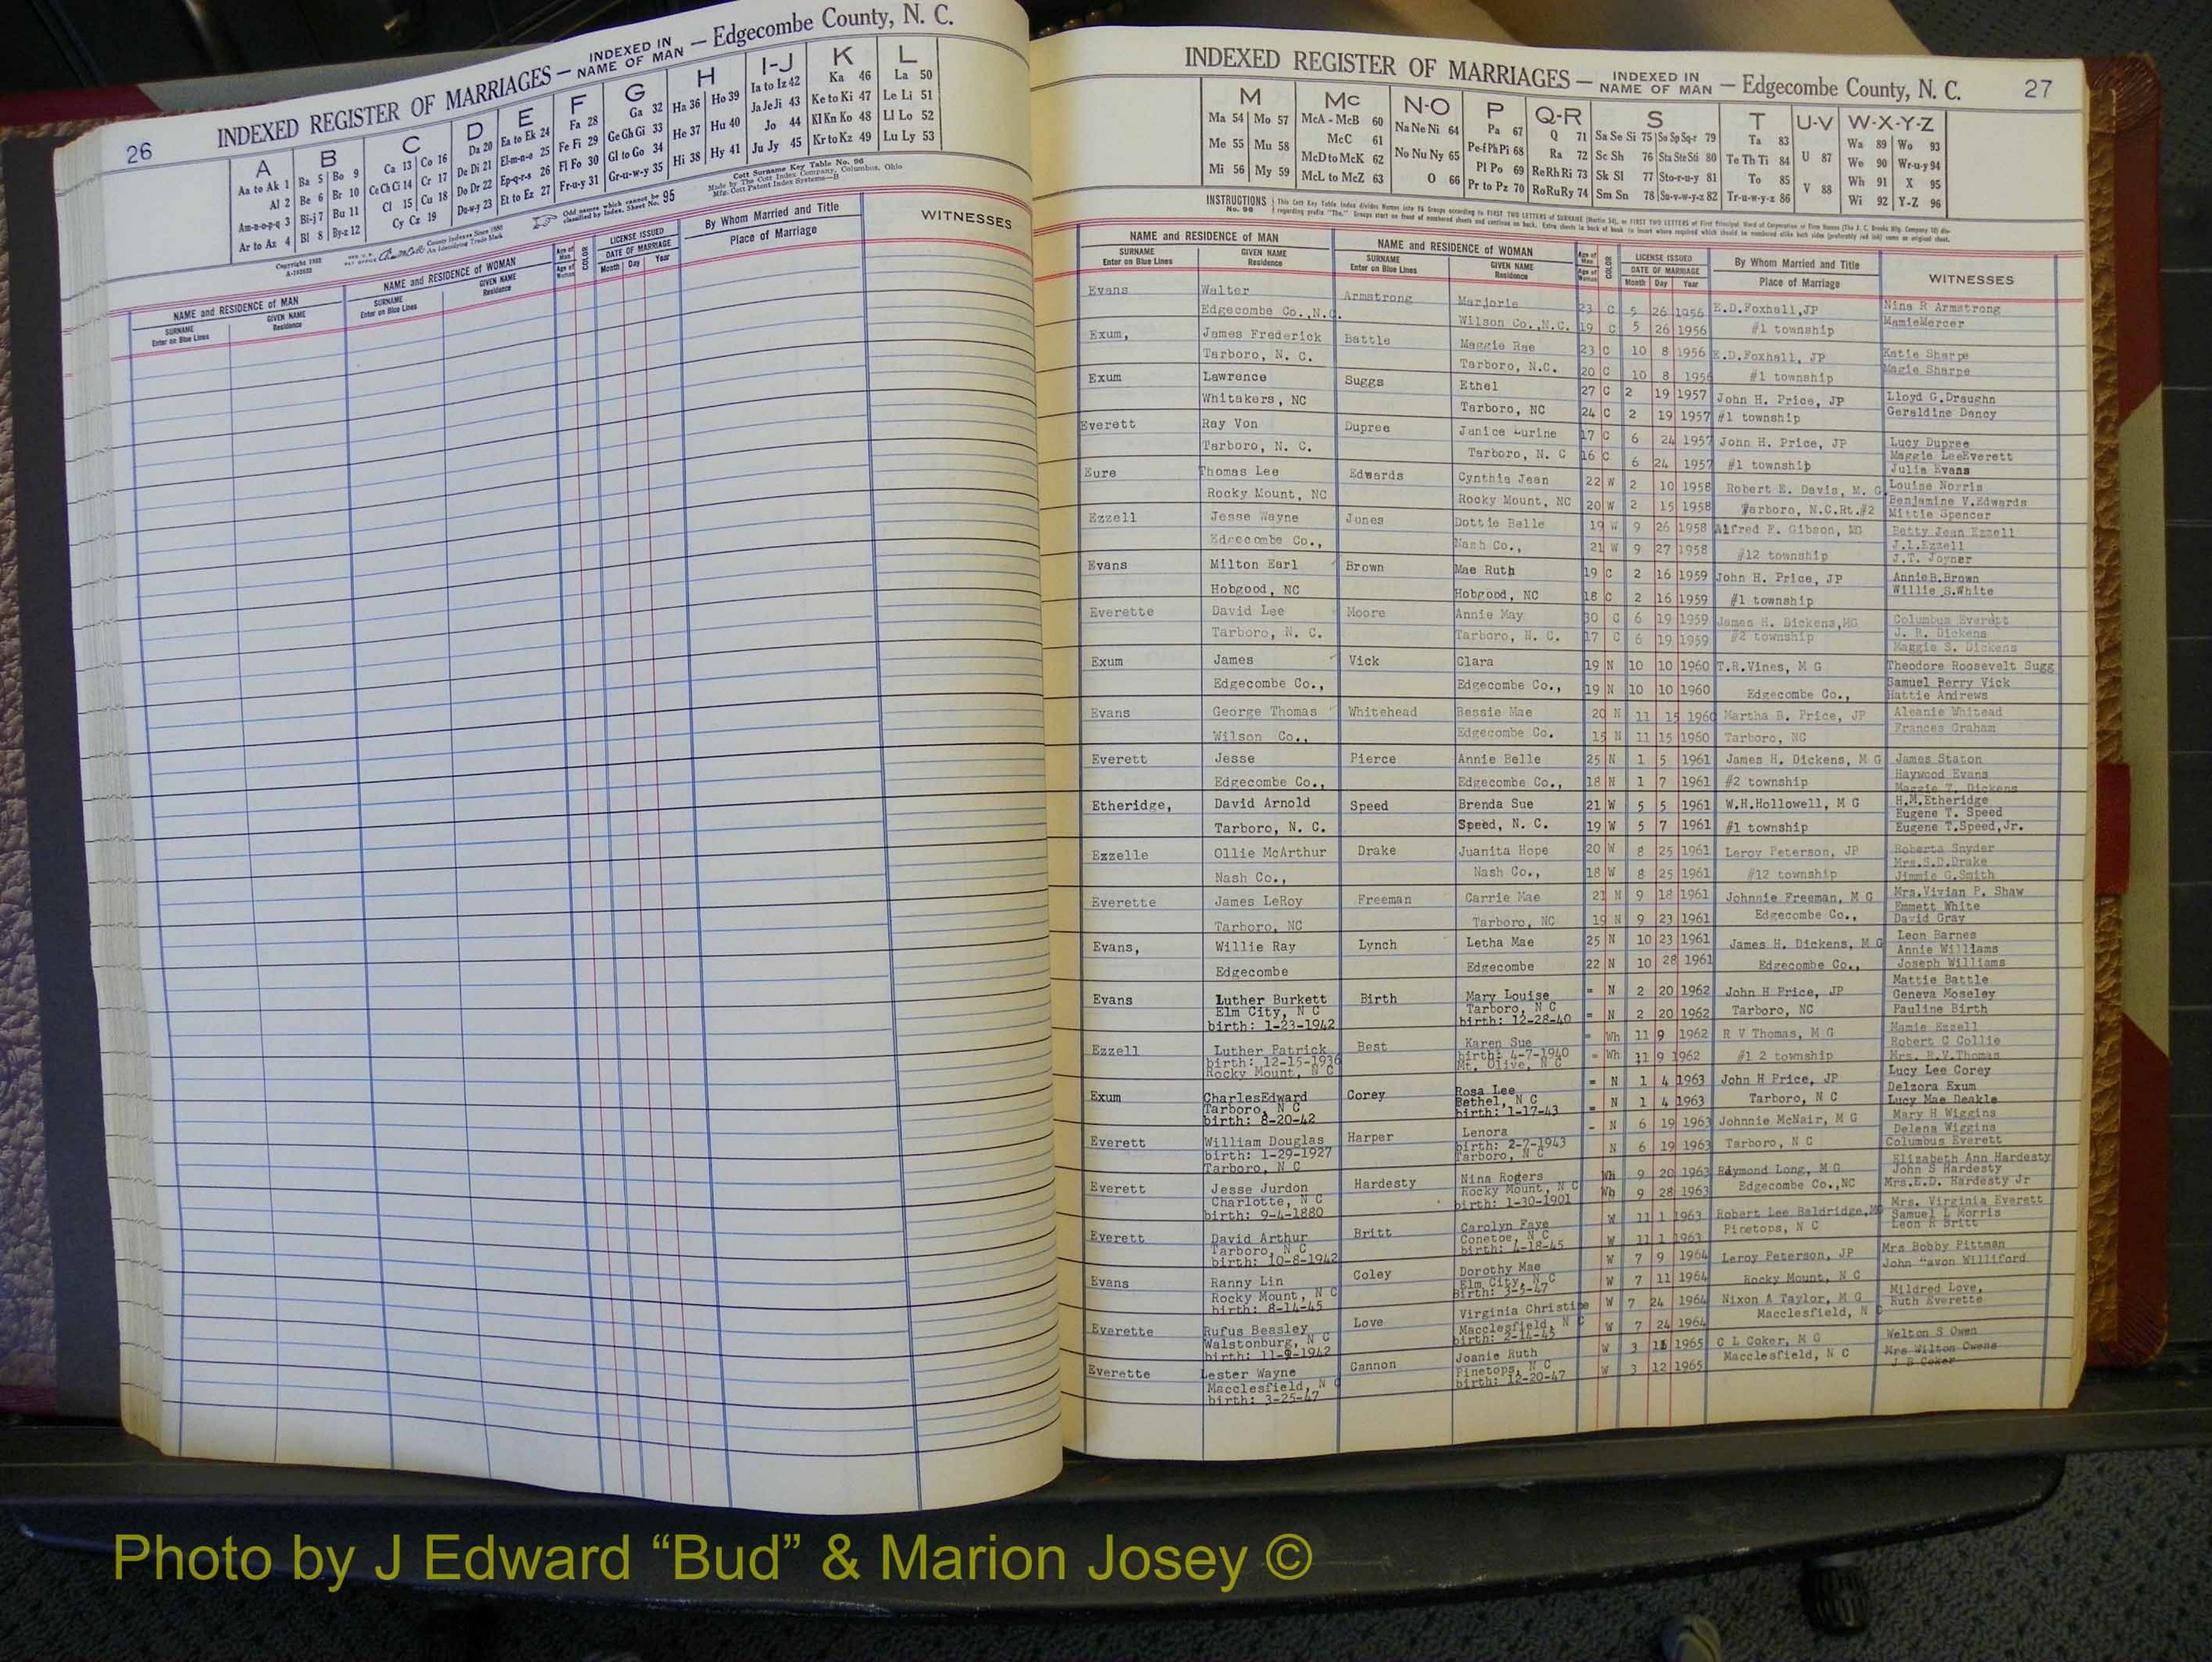 26
INDEXED REGISTER OF MARRIAGES — INDEXED IN NAME OF MAN — Edgecombe County, N. C.
A B C D E F G H I-J K L
Aa to Ak 1 Ba 5 Bo 9 Ca 13 Co 16 Da 20 Ea to Ek 24 Fa 28 Ga 32 Ha 36 Ho 39 Ia to Iz 42 Ka 46 La 50
Al 2 Be 6 Br 10 Ce Ch Ci 14 Cr 17 De Di 21 El-m-n-o 25 Fe Fi 29 Ge Gh Gi 33 He 37 Hu 40 Ja Je Ji 43 Ke to Ki 47 Le Li 51
Am-n-o-p-q 3 Bi-j 7 Bu 11 Cl 15 Cu 18 Do Dr 22 Ep-q-r-s 26 Fl Fo 30 Gl to Go 34 Hi 38 Hy 41 Jo 44 Kl Kn Ko 48 Ll Lo 52
Ar to Az 4 Bl 8 By-z 12 Cy Cz 19 Du-w-y 23 Et to Ez 27 Fr-u-y 31 Gr-u-w-y 35 Ju Jy 45 Kr to Kz 49 Lu Ly 53
Odd names which cannot be classified by Index, Sheet No. 95
Cott Surname Key Table No. 96
Made by The Cott Index Company, Columbus, Ohio
Mfg. Cott Patent Index Systems—B
County Indexes Since 1888
An Identifying Trade Mark
NAME and RESIDENCE of MAN
SURNAME
Enter on Blue Lines
GIVEN NAME
Residence
NAME and RESIDENCE of WOMAN
SURNAME
Enter on Blue Lines
GIVEN NAME
Residence
Age of Man
Age of Woman
COLOR
LICENSE ISSUED
DATE OF MARRIAGE
Month Day Year
By Whom Married and Title
Place of Marriage
WITNESSES
INDEXED REGISTER OF MARRIAGES — INDEXED IN NAME OF MAN — Edgecombe County, N. C. 27
M Mc N-O P Q-R S T U-V W-X-Y-Z
Ma 54 Mo 57 McA - McB 60 Na Ne Ni 64 Pa 67 Q 71 Sa Se Si 75 So Sp Sq-r 79 Ta 83 U 87 Wa 89 Wo 93
Me 55 Mu 58 McC 61 No Nu Ny 65 Pe-f Ph Pi 68 Ra 72 Sc Sh 76 Sta Ste Sti 80 Te Th Ti 84 V 88 We 90 Wr-u-y 94
Mi 56 My 59 McD to McK 62 O 66 Pl Po 69 Re Rh Ri 73 Sk Sl 77 Sto-r-u-y 81 To 85 Wh 91 X 95
McL to McZ 63 Pr to Pz 70 Ro Ru Ry 74 Sm Sn 78 Su-v-w-y-z 82 Tr-u-w-y-z 86 Wi 92 Y-Z 96
INSTRUCTIONS No. 96
NAME and RESIDENCE of MAN
SURNAME
Enter on Blue Lines
GIVEN NAME
Residence
NAME and RESIDENCE of WOMAN
SURNAME
Enter on Blue Lines
GIVEN NAME
Residence
Age of Man
Age of Woman
COLOR
LICENSE ISSUED
DATE OF MARRIAGE
Month Day Year
By Whom Married and Title
Place of Marriage
WITNESSES
Evans Walter Armstrong Marjorie 23 C 5 26 1956 E.D.Foxhall,JP Nina R Armstrong
Edgecombe Co.,N.C. Wilson Co.,N.C. 19 C 5 26 1956 #1 township MamieMercer
Exum, James Frederick Battle Maggie Rae 23 C 10 8 1956 E.D.Foxhall, JP Katie Sharpe
Tarboro, N. C. Tarboro, N.C. 20 C 10 8 1956 #1 township Magie Sharpe
Exum Lawrence Suggs Ethel 27 C 2 19 1957 John H. Price, JP Lloyd G.Draughn
Whitakers, NC Tarboro, NC 24 C 2 19 1957 #1 township Geraldine Dancy
Everett Ray Von Dupree Janice Lurine 17 C 6 24 1957 John H. Price, JP Lucy Dupree
Maggie LeeEverett
Tarboro, N. C. Tarboro, N. C 16 C 6 24 1957 #1 township Julia Evans
Eure Thomas Lee Edwards Cynthia Jean 22 W 2 10 1958 Robert E. Davis, M. G. Louise Norris
Benjamine V.Edwards
Rocky Mount, NC Rocky Mount, NC 20 W 2 15 1958 Tarboro, N.C.Rt.#2 Mittie Spencer
Ezzell Jesse Wayne Jones Dottie Belle 19 W 9 26 1958 Alfred F. Gibson, MG Betty Jean Ezzell
J.L.Ezzell
Edgecombe Co., Nash Co., 21 W 9 27 1958 #12 township J.T. Joyner
Evans Milton Earl Brown Mae Ruth 19 C 2 16 1959 John H. Price, JP AnnieB.Brown
Hobgood, NC Hobgood, NC 18 C 2 16 1959 #1 township Willie S.White
Everette David Lee Moore Annie May 30 C 6 19 1959 James H. Dickens,MG Columbus Everett
J. R. Dickens
Tarboro, N. C. Tarboro, N. C. 17 C 6 19 1959 #2 township Maggie S. Dickens
Exum James Vick Clara 19 N 10 10 1960 T.R.Vines, M G Theodore Roosevelt Sugg
Samuel Perry Vick
Edgecombe Co., Edgecombe Co., 19 N 10 10 1960 Edgecombe Co., Hattie Andrews
Evans George Thomas Whitehead Bessie Mae 20 N 11 15 1960 Martha B. Price, JP Aleanie Whitead
Wilson Co., Edgecombe Co. 15 N 11 15 1960 Tarboro, NC Frances Graham
Everett Jesse Pierce Annie Belle 25 N 1 5 1961 James H. Dickens, M G James Staton
Haywood Evans
Edgecombe Co., Edgecombe Co., 18 N 1 7 1961 #2 township Maggie T. Dickens
Etheridge, David Arnold Speed Brenda Sue 21 W 5 5 1961 W.H.Hollowell, M G H.M.Etheridge
Eugene T. Speed
Tarboro, N. C. Speed, N. C. 19 W 5 7 1961 #1 township Eugene T.Speed,Jr.
Ezzelle Ollie McArthur Drake Juanita Hope 20 W 8 25 1961 Leroy Peterson, JP Roberta Snyder
Mrs.S.D.Drake
Nash Co., Nash Co., 18 W 8 25 1961 #12 township Jimmie G.Smith
Everette James LeRoy Freeman Carrie Mae 21 N 9 18 1961 Johnnie Freeman, M G Mrs.Vivian P. Shaw
Emmett White
Tarboro, NC Tarboro, NC 19 N 9 23 1961 Edgecombe Co., David Gray
Evans, Willie Ray Lynch Letha Mae 25 N 10 23 1961 James H. Dickens, M G Leon Barnes
Annie Williams
Edgecombe Edgecombe 22 N 10 28 1961 Edgecombe Co., Joseph Williams
Evans Luther Burkett Birth Mary Louise = N 2 20 1962 John H Price, JP Mattie Battle
Elm City, N C Tarboro, N C Geneva Moseley
birth: 1-23-1942 birth: 12-28-40 = N 2 20 1962 Tarboro, NC Pauline Birth
Ezzell Luther Patrick Best Karen Sue = Wh 11 9 1962 R V Thomas, M G Mamie Ezzell
birth: 12-15-1936 birth: 4-7-1940 Robert C Collie
Rocky Mount, N C Mt. Olive, N C = Wh 11 9 1962 #1 2 township Mrs. R.V.Thomas
Exum CharlesEdward Corey Rosa Lee = N 1 4 1963 John H Price, JP Lucy Lee Corey
Tarboro, N C Bethel, N C Delzora Exum
birth: 8-20-42 birth: 1-17-43 = N 1 4 1963 Tarboro, N C Lucy Mae Deakle
Everett William Douglas Harper Lenora - N 6 19 1963 Johnnie McNair, M G Mary H Wiggins
birth: 1-29-1927 birth: 2-7-1943 Delena Wiggins
Tarboro, N C Tarboro, N C N 6 19 1963 Tarboro, N C Columbus Everett
Everett Jesse Jurdon Hardesty Nina Rogers Wh 9 20 1963 Raymond Long, M G Elizabeth Ann Hardesty
Charlotte, N C Rocky Mount, N C John S Hardesty
birth: 9-4-1880 birth: 1-30-1901 Wh 9 28 1963 Edgecombe Co.,NC Mrs.E.D. Hardesty Jr
Everett David Arthur Britt Carolyn Faye W 11 1 1963 Robert Lee Baldridge,MG Mrs. Virginia Everett
Tarboro, N C Conetoe, N C Samuel L Morris
birth: 10-8-1942 birth: 4-18-45 W 11 1 1963 Pinetops, N C Leon R Britt
Evans Ranny Lin Coley Dorothy Mae W 7 9 1964 Leroy Peterson, JP Mrs Bobby Pittman
Rocky Mount, N C Elm City, N C John "avon Williford
birth: 8-14-45 Birth: 3-5-47 W 7 11 1964 Rocky Mount, N C
Everette Rufus Beasley Love Virginia Christine W 7 24 1964 Nixon A Taylor, M G Mildred Love,
Walstonburg, N C Macclesfield, N C Ruth Everette
birth: 11-9-1942 birth: 2-14-45 W 7 24 1964 Macclesfield, N C
Everette Lester Wayne Cannon Joanie Ruth W 3 1965 C L Coker, M G Welton S Owen
Macclesfield, N C Pinetops, N C Mrs Wilton Owens
birth: 3-25-47 birth: 12-20-47 W 3 12 1965 Macclesfield, N C J B Coker
Photo by J Edward “Bud” & Marion Josey ©